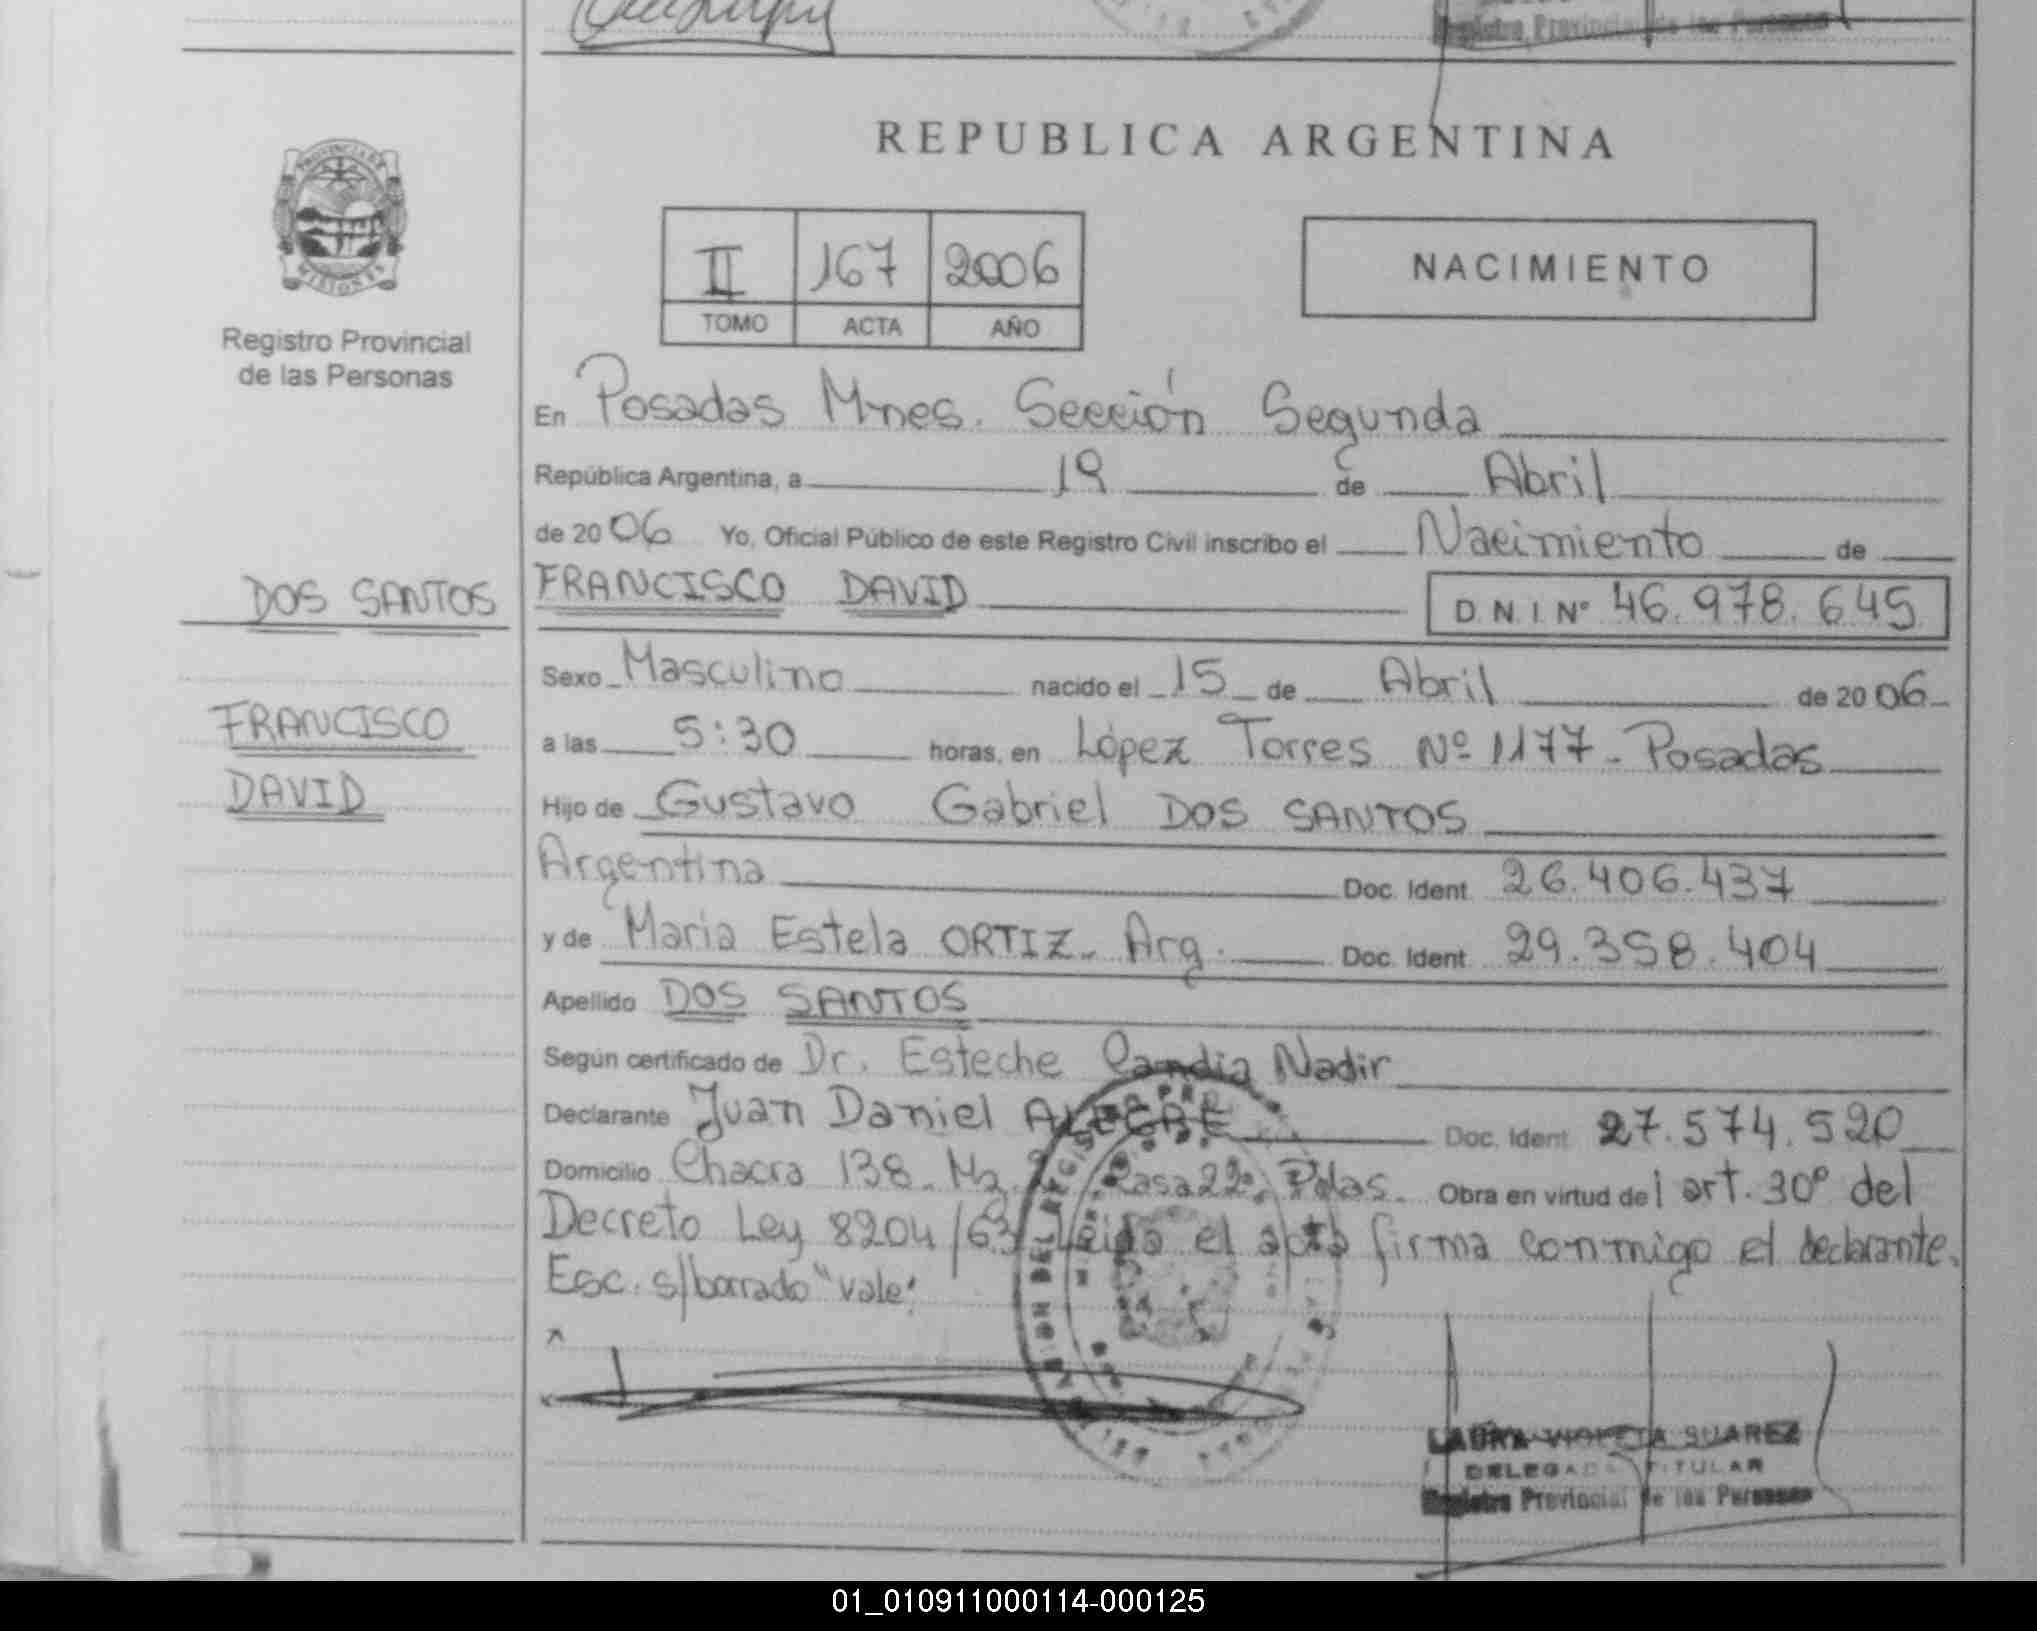 Registro Provincial de las Personas
REPUBLICA ARGENTINA
PROVINCIA DE
MISIONES
Registro Provincial
de las Personas
II 167 2006
TOMO ACTA AÑO
NACIMIENTO
En Posadas Mnes. Sección Segunda
República Argentina, a 19 de Abril
de 2006 Yo, Oficial Público de este Registro Civil inscribo el Nacimiento de
DOS SANTOS FRANCISCO DAVID D.N.I. Nº 46.978.645
Sexo Masculino nacido el 15 de Abril de 2006
FRANCISCO
a las 5:30 horas, en López Torres Nº 1177 - Posadas
DAVID
Hijo de Gustavo Gabriel DOS SANTOS
Argentina Doc. Ident. 26.406.437
y de Maria Estela ORTIZ - Arg. Doc. Ident. 29.358.404
Apellido DOS SANTOS
Según certificado de Dr. Esteche Candia Nadir
Declarante Juan Daniel ALEGRE Doc. Ident. 27.574.520
Domicilio Chacra 138 - Mz. Casa 22 Pdas. Obra en virtud del art. 30º del
Decreto Ley 8204/63 Leida el acta firma conmigo el declarante.
Esc. s/borrado "vale".
LAURA VIOLETA SUAREZ
DELEGADA TITULAR
Registro Provincial de las Personas
01_010911000114-000125